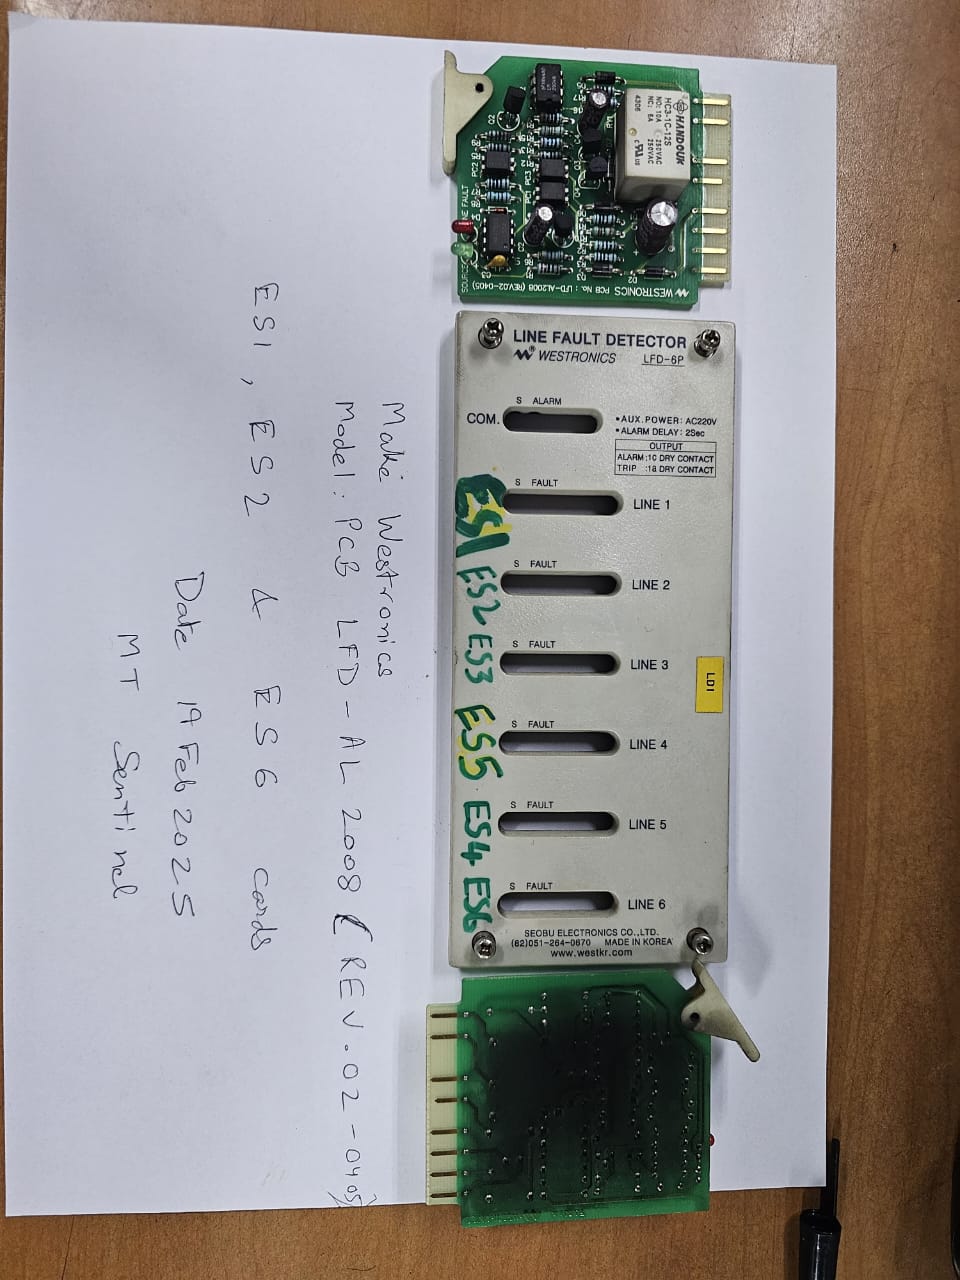 HANDOUK
HC3-1C-12S
NO: 10A 250VAC
NC: 6A 250VAC
4306
LINE FAULT
SOURCE
WESTRONICS PCB No. : LFD-AL2008 (REV.02-0405)
LINE FAULT DETECTOR
WESTRONICS LFD-6P
S ALARM
COM.
•AUX.POWER: AC220V
•ALARM DELAY: 2Sec
OUTPUT
ALARM :1C DRY CONTACT
TRIP :1a DRY CONTACT
S FAULT
ES1 LINE 1
S FAULT
ES2 LINE 2
S FAULT
ES3 LINE 3
LD1
S FAULT
ES5 LINE 4
S FAULT
ES4 LINE 5
S FAULT
ES6 LINE 6
SEOBU ELECTRONICS CO.,LTD.
(82)051-264-0670 MADE IN KOREA
www.westkr.com
Make Westronics
Model: PCB LFD-AL 2008 (REV.02-0405)
ES1, ES2 & ES6 cards
Date 19 Feb 2025
MT Sentinel